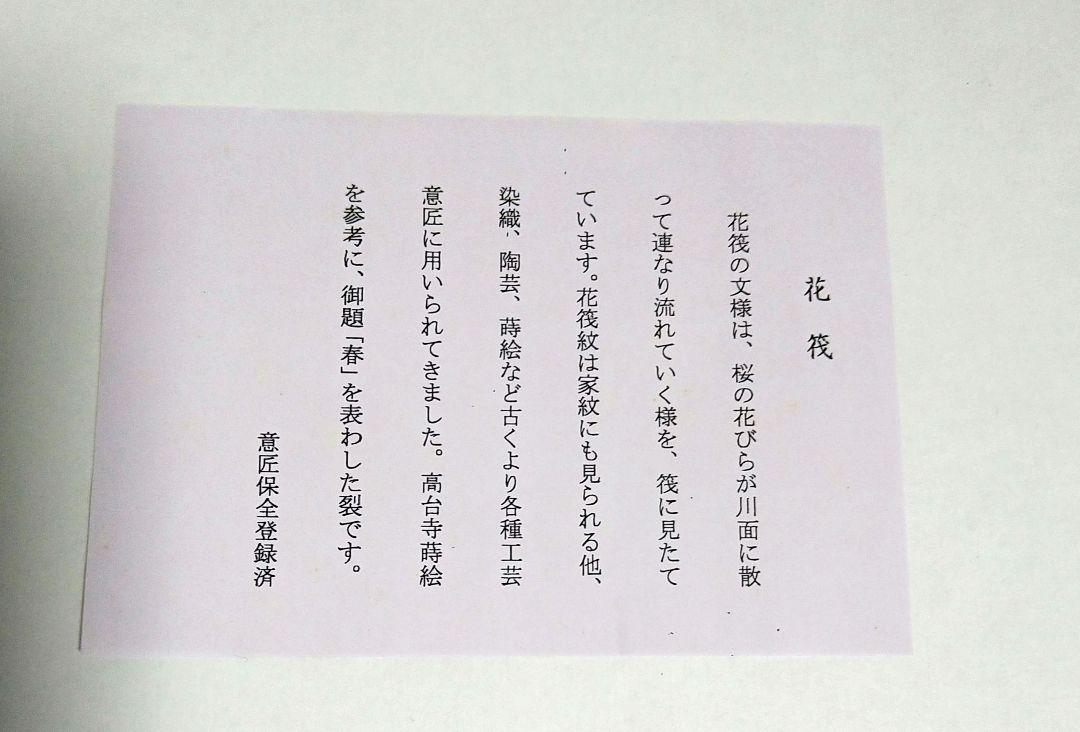 花筏
花筏の文様は、桜の花びらが川面に散
って連なり流れていく様を、筏に見たて
ています。花筏紋は家紋にも見られる他、
染織、陶芸、蒔絵など古くより各種工芸
意匠に用いられてきました。高台寺蒔絵
を参考に、御題「春」を表わした裂です。
意匠保全登録済